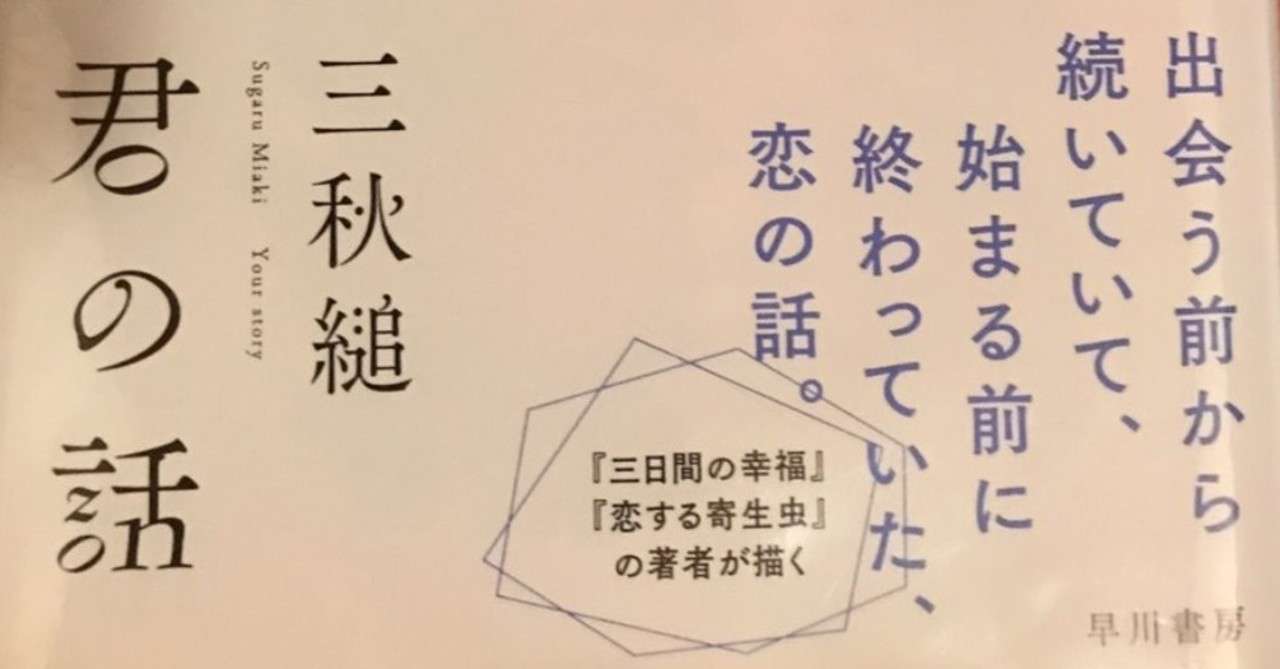 出会う前から
続いていて、
始まる前に
終わっていた、
恋の話。
『三日間の幸福』
『恋する寄生虫』
の著者が描く
早川書房
三秋縋
Sugaru Miaki Your story
君の話